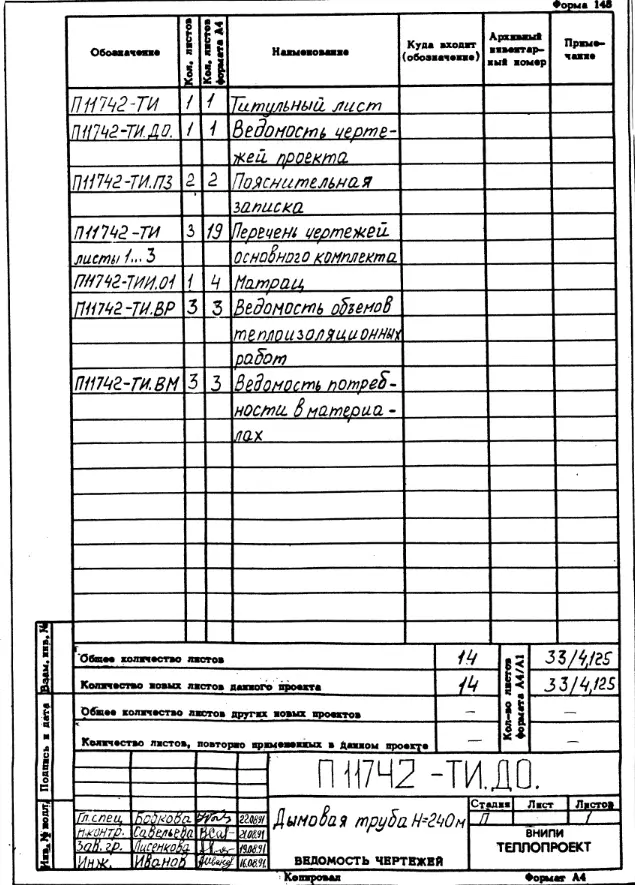 Форма 148
Обозначение Кол. листов Кол. листов формата А4 Наименование Куда входит (обозначение) Архивный инвентарный номер Примечание
П11742-ТИ 1 1 Титульный лист
П11742-ТИ.ДО. 1 1 Ведомость черте-
жей проекта
П11742-ТИ.ПЗ 2 2 Пояснительная
записка
П11742-ТИ 3 19 Перечень чертежей
листы 1... 3 основного комплекта
П11742-ТИИ.01 1 4 Матрац
П11742-ТИ.ВР 3 3 Ведомость объемов
теплоизоляционных
работ
П11742-ТИ.ВМ 3 3 Ведомость потреб-
ности в материа-
лах
Общее количество листов 14 Кол-во листов формата А4/А1 33/4,125
Количество новых листов данного проекта 14 33/4,125
Общее количество листов других новых проектов — —
Количество листов, повторно примененных в данном проекте — —
Взам. инв. №
Подпись и дата
Инв. № подл.
П 11742 -ТИ.ДО.
Гл.спец Бобкова 22.08.91
Н.контр. Савельева 21.08.91
Зав. гр. Лисенкова 19.08.91
Инж. Иванов 16.08.91
Дымовая труба Н=240м
ВЕДОМОСТЬ ЧЕРТЕЖЕЙ
Стадия Лист Листов
П 1
ВНИПИ
ТЕПЛОПРОЕКТ
Копировал Формат А4